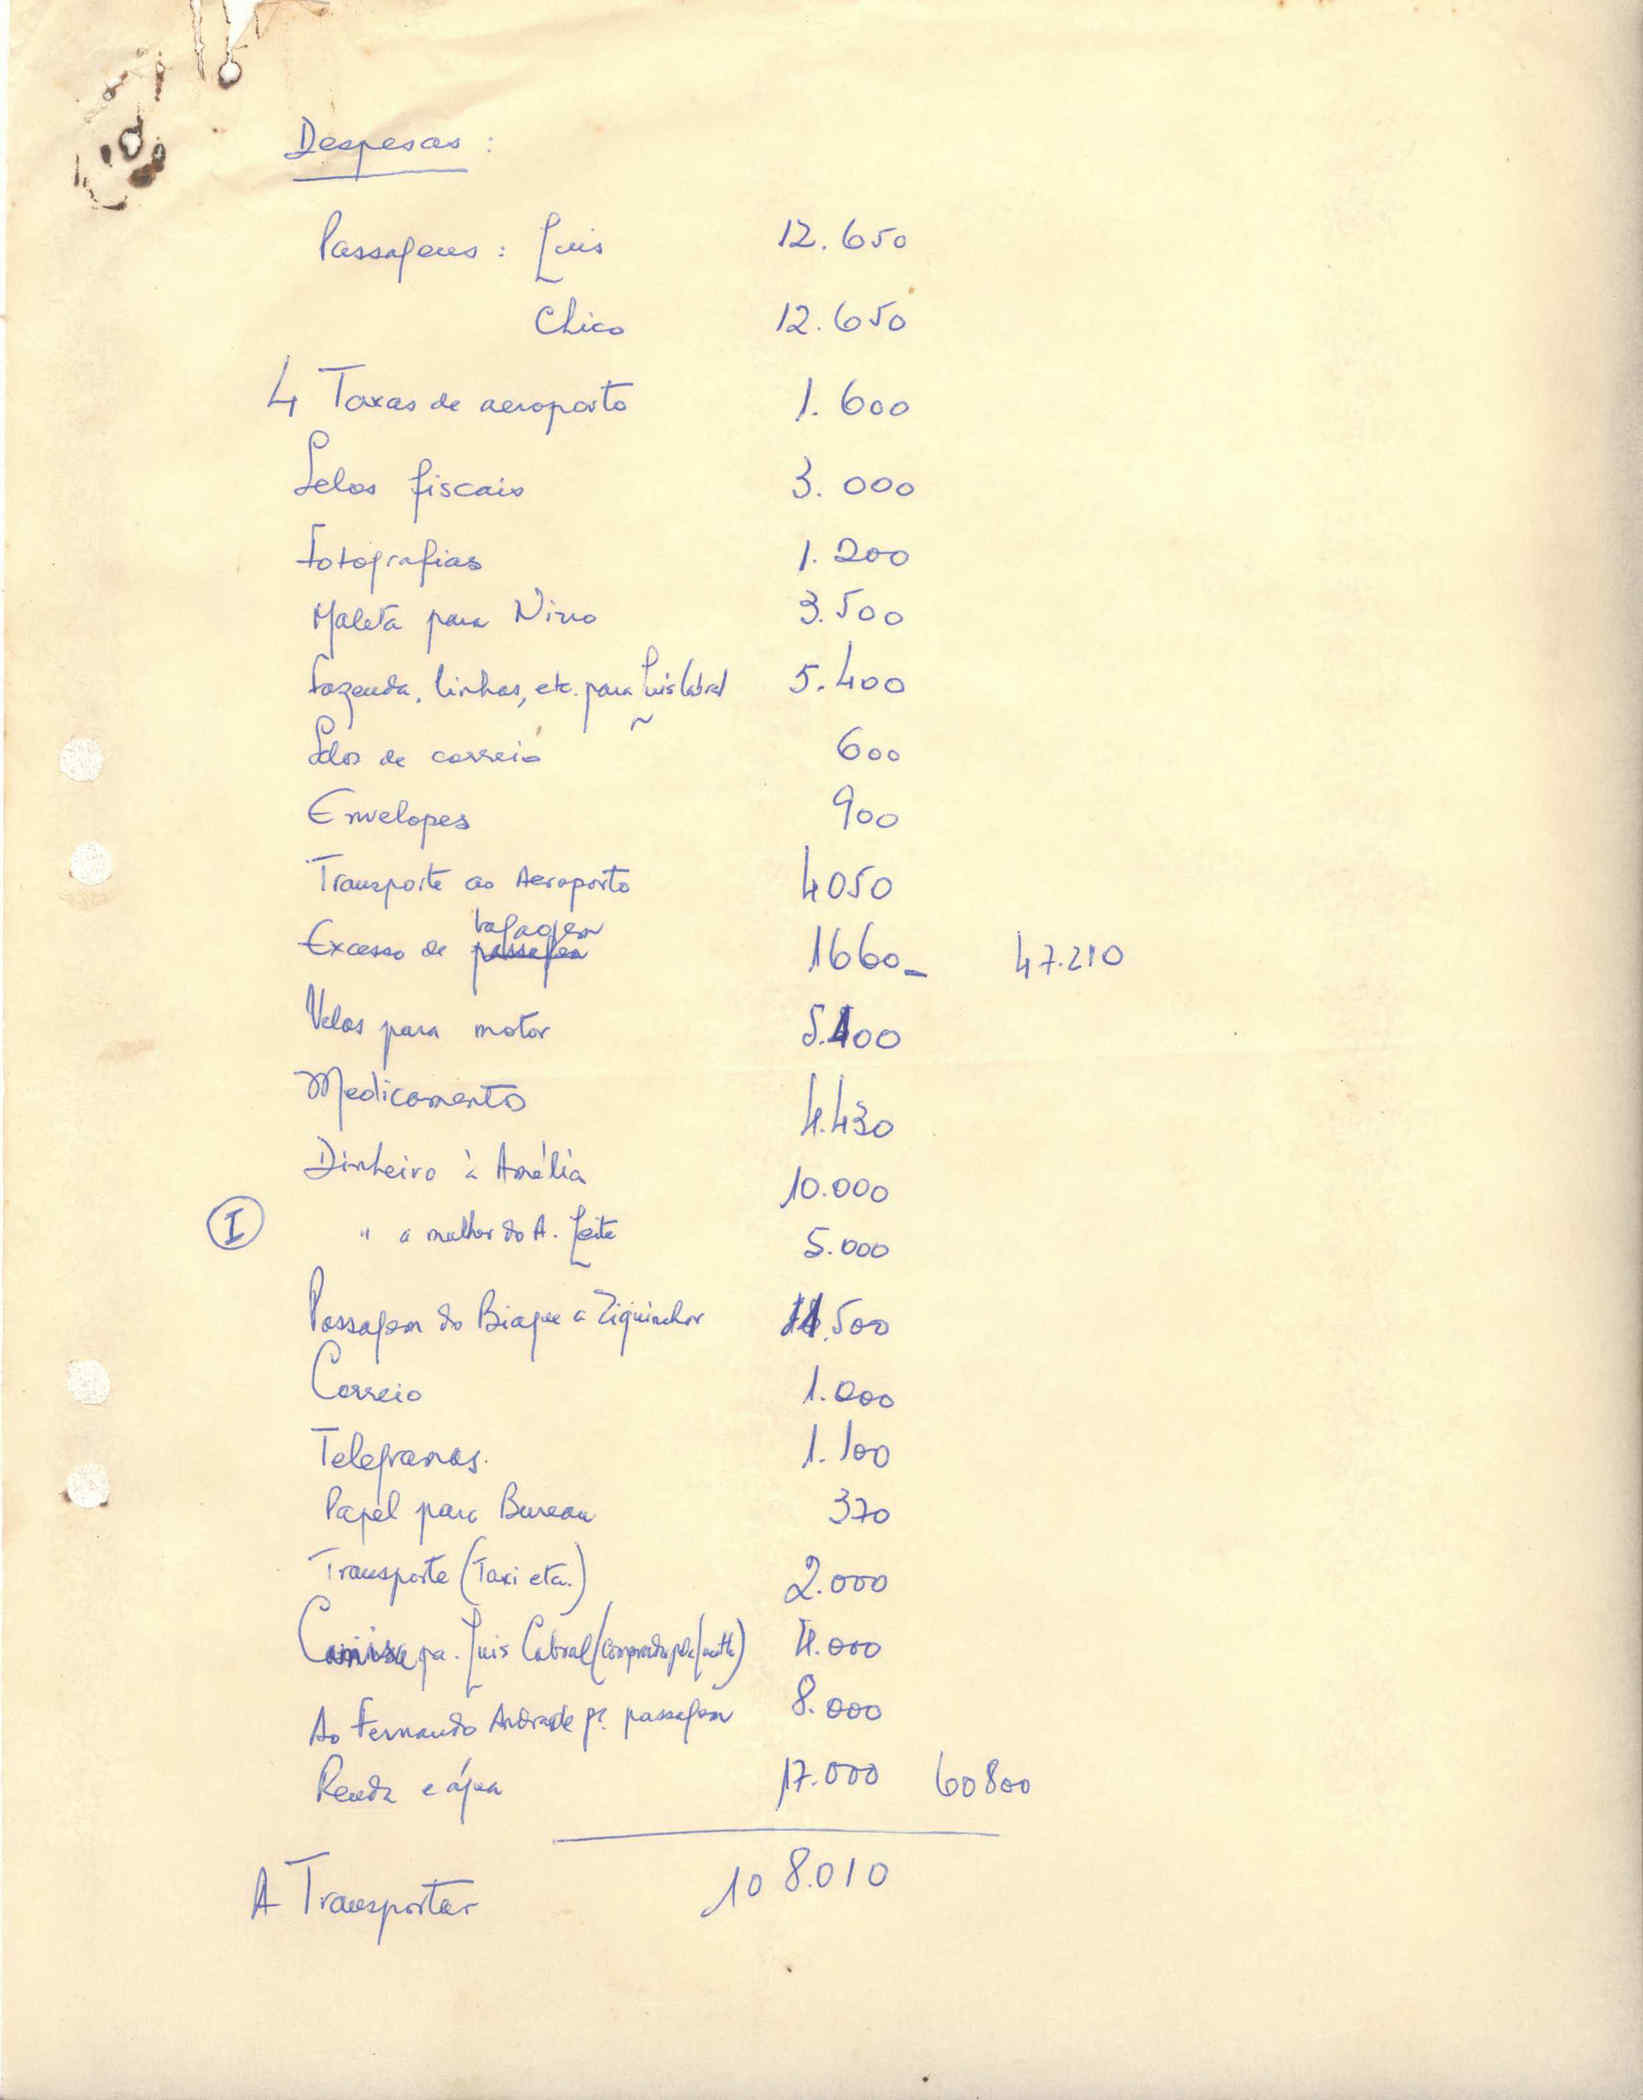 Despesas :
Passagens : Luis 12.650
Chico 12.650
4 Taxas de aeroporto 1.600
Selos fiscais 3.000
Fotografias 1.200
Maleta para Nino 3.500
Fazenda, linhas, etc. para Luis Cabral 5.400
Selos de correio 600
Envelopes 900
Transporte ao Aeroporto 4050
bagagem
Excesso de passagem 1660 - 47.210
Velas para motor 5.400
Medicamento 4.430
Dinheiro à Amélia 10.000
I " a mulher do A. Leite 5.000
Passagem do Biague a Ziguinchor
Correio 1.000
Telegramas. 1.100
Papel para Bureau 370
Transporte (Taxi etc.) 2.000
Camisa pa. Luis Cabral (comprada pela 4.000
Ao Fernando Andrade pª. passagem 8.000
Renda e água 17.000 60800
A Transportar 108.010